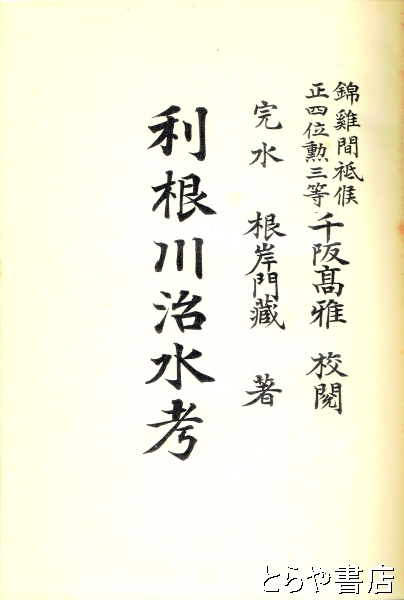 錦雞間祗候
正四位勲三等 千阪髙雅 校閲
完水 根岸門藏 著
利根川治水考
とらや書店